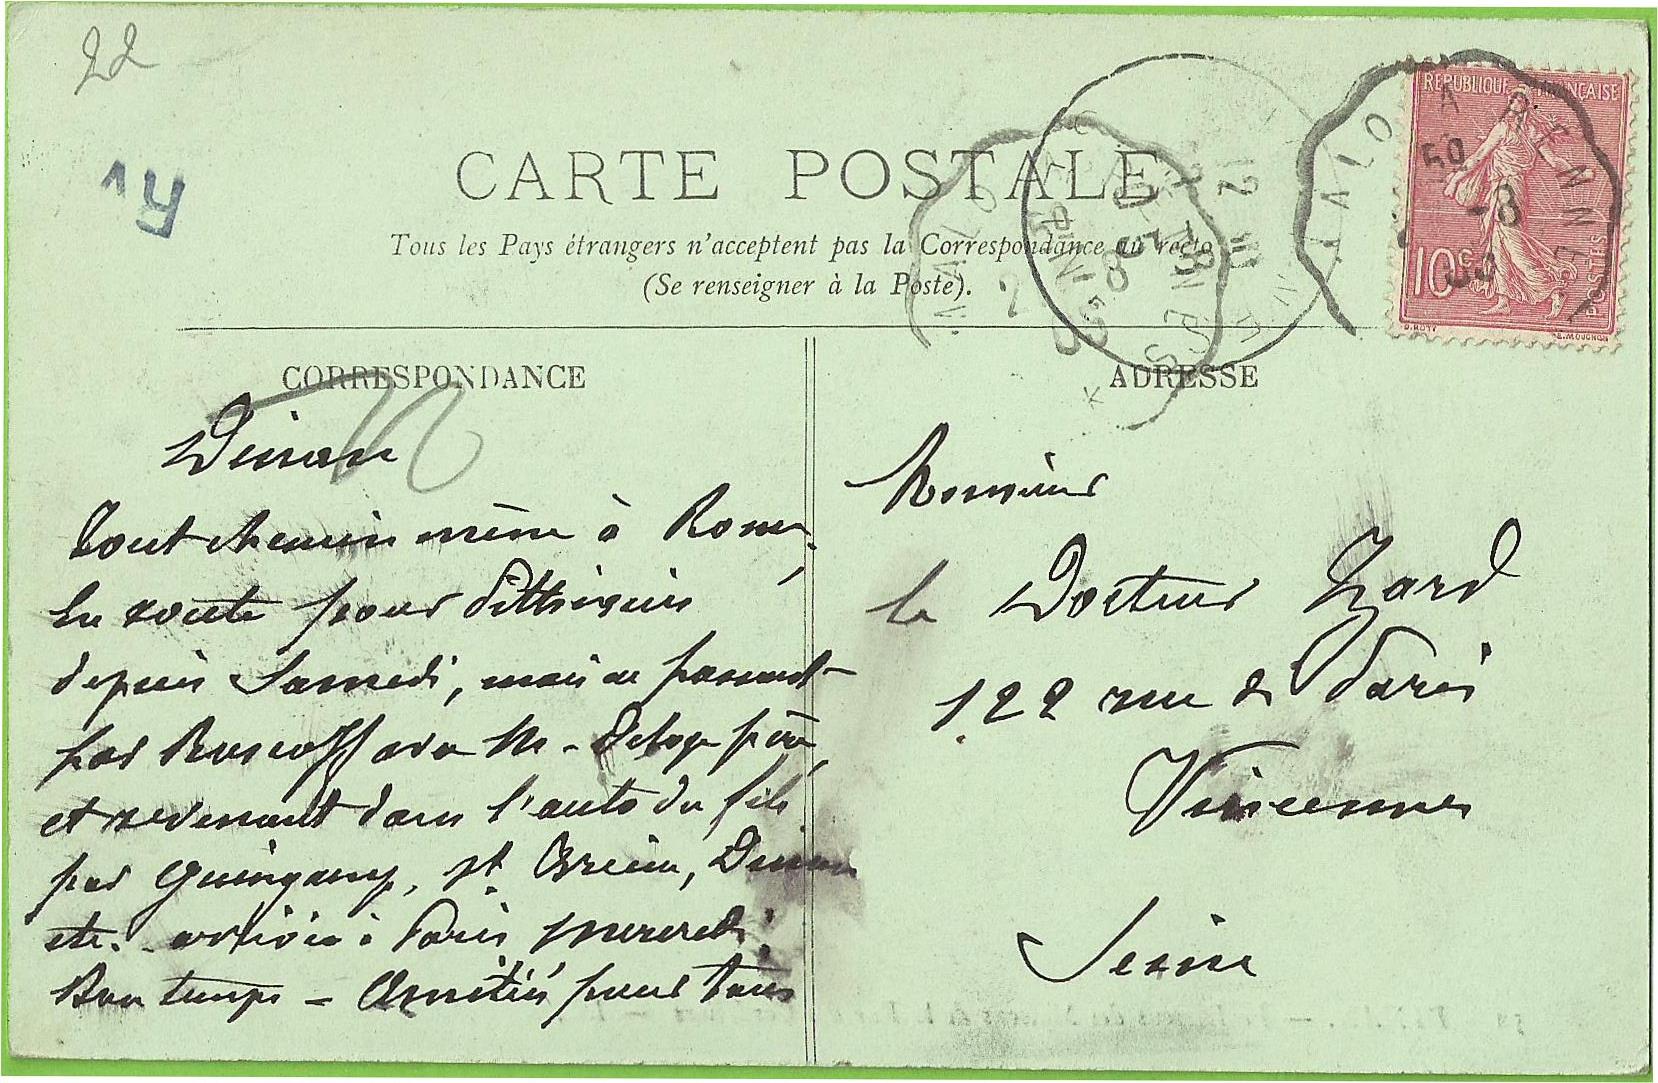 22
CARTE POSTALE
Tous les Pays étrangers n'acceptent pas la Correspondance au recto
(Se renseigner à la Poste).
REPUBLIQUE FRANÇAISE
10c
POSTES
O. ROTY
E. MOUCHON
A RENNES
50
-8
CORRESPONDANCE
ADRESSE
Dinan
Tout chemin mène à Rome,
En route pour
depuis Samedi, mais en passant
par Roscoff avec M. Delage père,
et revenant dans l'auto du fils
par Guingamp, St Brieuc, Dinan
etc. arrivée à Paris mercredi.
Bon temps - Amitiés pour tous
Monsieur
le Docteur
122 rue de Paris
Vincennes
Seine